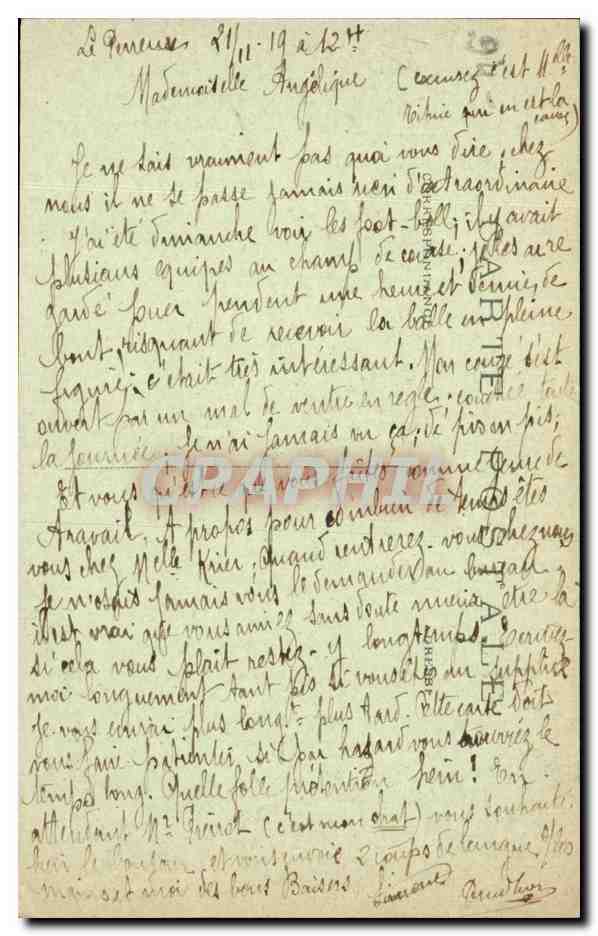 Le Perreux 21/11-19 à 12H
Mademoiselle Angélique (excusez c'est Mlle
qui en est la
cause)
Je ne sais vraiment pas quoi vous dire, chez
nous il ne se passe jamais rien d'extraordinaire
J'ai été dimanche voir les foot-ball; il y avait
plusieurs equipes au champ de course; je les ai re
gardé jouer pendent une heure et demie, de
bout, risquant de recevoir la balle en pleine
figure; c'était très intéressant. Mon congé s'est
ouvert par un mal de ventre en règle, toute
la journée. Je n'ai jamais vu ça; de pis en pis;
Et vous vous faîtes comme genre de
travail. A propos pour combien de temps êtes
vous chez Melle Krier, quand rentrerez-vous chez vous
Je n'osais jamais vous le demander au bureau
il est vrai que vous aimez sans doute mieux être là
si cela vous plait restez-y longtemps. Ecrivez
moi longuement tant pis si vous êtes au supplice
Je vous écrirai plus longt plus tard. Cette carte doit
vous faire patienter, si par hazard vous trouviez le
temps long. Quelle folle prétention hein! En
attendant Mr (c'est mon chat) vous souhaite
bien le bonjour et vous envoie 2 coups de langue
et moi des bons Baisers Simone
CARTE POSTALE
CORRESPONDANCE
ADRESSE
CPAPHIL